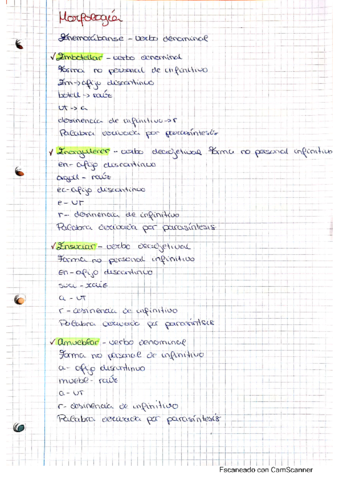 Morfología
- verbo denominal
✓ Embotellar - verbo denominal
Forma no personal de infinitivo
Em → afijo discontinuo
botell → raíz
VT → a
desinencia de infinitivo → r
Palabra derivada por parasíntesis
✓ - verbo deadjetival Forma no personal infinitivo
en - afijo discontinuo
orgull - raíz
ec - afijo discontinuo
e - VT
r - desinencia de infinitivo
Palabra derivada por parasíntesis
✓ Ensuciar - verbo deadjetival
Forma no personal infinitivo
En - afijo discontinuo
suci - raíz
a - VT
r - desinencia de infinitivo
Palabra derivada por parasíntesis
✓ Amueblar - verbo denominal
Forma no personal de infinitivo
a - afijo discontinuo
muebl - raíz
a - VT
r - desinencia de infinitivo
Palabra derivada por parasíntesis
Escaneado con CamScanner